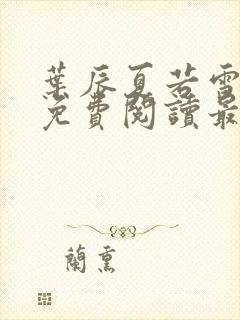 葉辰夏若雪
免費閱讀最
蘭熏